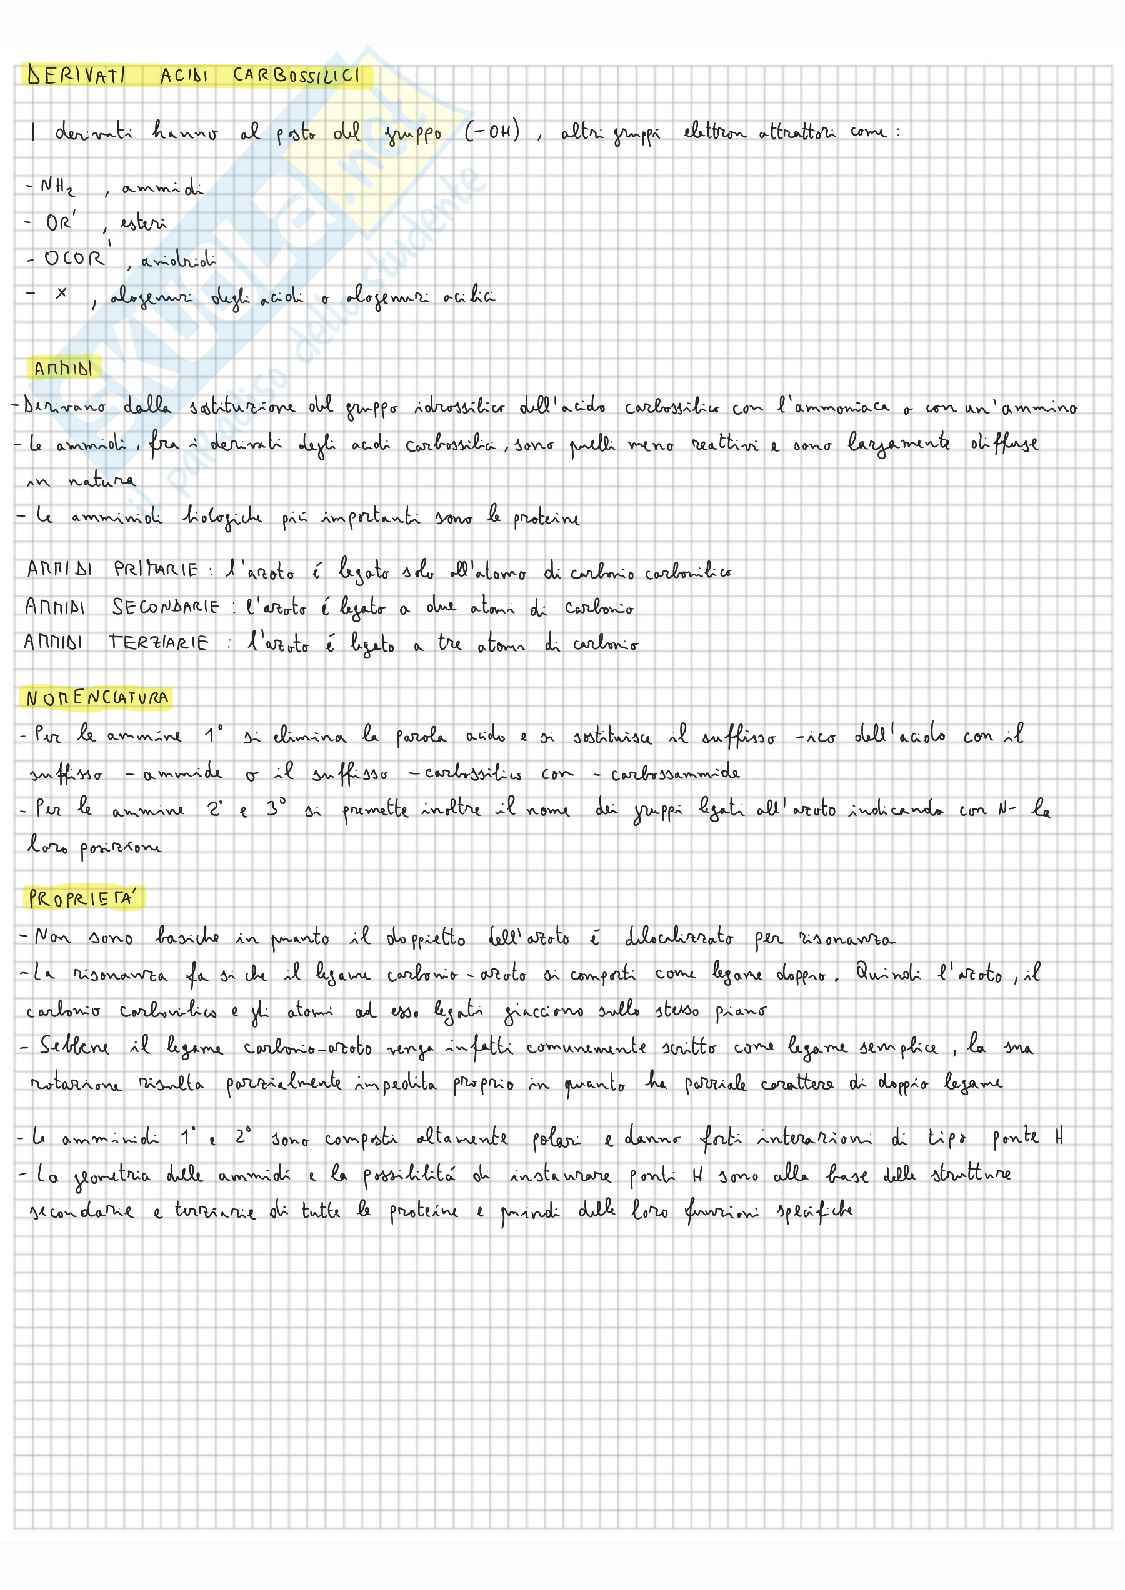 DERIVATI ACIDI CARBOSSILICI
I derivati hanno al posto del gruppo (-OH), altri gruppi elettron attrattori come:
- NH₂ , ammidi
- OR' , esteri
- OCOR' , anidridi
- X , alogenuri degli acidi o alogenuri acilici
AMMIDI
- Derivano dalla sostituzione del gruppo idrossilico dell'acido carbossilico con l'ammoniaca o con un'ammino
- Le ammidi, fra i derivati degli acidi carbossilici, sono quelli meno reattivi e sono largamente diffuse
in natura
- Le amminidi biologiche più importanti sono le proteine
AMMIDI PRIMARIE : l'azoto é legato solo all'atomo di carbonio carbonilico
AMMIDI SECONDARIE : l'azoto é legato a due atomi di carbonio
AMMIDI TERZIARIE : l'azoto é legato a tre atomi di carbonio
NOMENCLATURA
- Per le ammine 1° si elimina la parola acido e si sostituisce il suffisso -ico dell'acido con il
suffisso -ammide o il suffisso -carbossilico con -carbossammide
- Per le ammine 2° e 3° si premette inoltre il nome dei gruppi legati all'azoto indicando con N- la
loro posizione
PROPRIETA'
- Non sono basiche in quanto il doppietto dell'azoto é delocalizzato per risonanza
- La risonanza fa si che il legame carbonio-azoto si comporti come legame doppio. Quindi l'azoto, il
carbonio carbonilico e gli atomi ad esso legati giacciono sullo stesso piano
- Sebbene il legame carbonio-azoto venga infatti comunemente scritto come legame semplice, la sua
rotazione risulta parzialmente impedita proprio in quanto ha parziale carattere di doppio legame
- Le amminidi 1° e 2° sono composti altamente polari e danno forti interazioni di tipo ponte H
- La geometria delle ammidi e la possibilitá di instaurare ponti H sono alla base delle strutture
secondarie e terziarie di tutte le proteine e quindi delle loro funzioni specifiche
SKUOLA.net
il paradiso dello studente